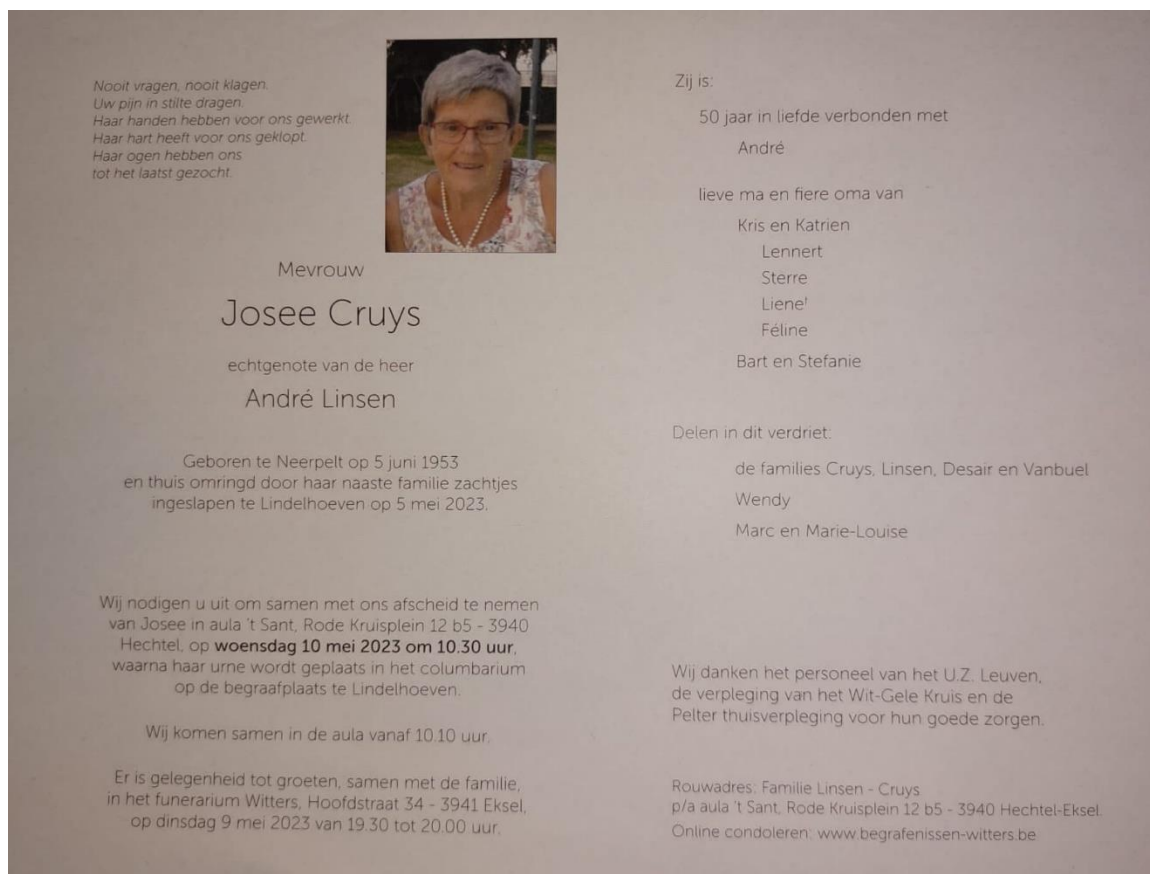 Nooit vragen, nooit klagen.
Uw pijn in stilte dragen.
Haar handen hebben voor ons gewerkt.
Haar hart heeft voor ons geklopt.
Haar ogen hebben ons
tot het laatst gezocht.
Mevrouw
Josee Cruys
echtgenote van de heer
André Linsen
Geboren te Neerpelt op 5 juni 1953
en thuis omringd door haar naaste familie zachtjes
ingeslapen te Lindelhoeven op 5 mei 2023.
Wij nodigen u uit om samen met ons afscheid te nemen
van Josee in aula 't Sant, Rode Kruisplein 12 b5 - 3940
Hechtel, op woensdag 10 mei 2023 om 10.30 uur,
waarna haar urne wordt geplaats in het columbarium
op de begraafplaats te Lindelhoeven.
Wij komen samen in de aula vanaf 10.10 uur.
Er is gelegenheid tot groeten, samen met de familie,
in het funerarium Witters, Hoofdstraat 34 - 3941 Eksel,
op dinsdag 9 mei 2023 van 19.30 tot 20.00 uur.
Zij is:
50 jaar in liefde verbonden met
André
lieve ma en fiere oma van
Kris en Katrien
Lennert
Sterre
Liene'
Féline
Bart en Stefanie
Delen in dit verdriet:
de families Cruys, Linsen, Desair en Vanbuel
Wendy
Marc en Marie-Louise
Wij danken het personeel van het U.Z. Leuven,
de verpleging van het Wit-Gele Kruis en de
Pelter thuisverpleging voor hun goede zorgen.
Rouwadres: Familie Linsen - Cruys
p/a aula 't Sant, Rode Kruisplein 12 b5 - 3940 Hechtel-Eksel.
Online condoleren: www.begrafenissen-witters.be